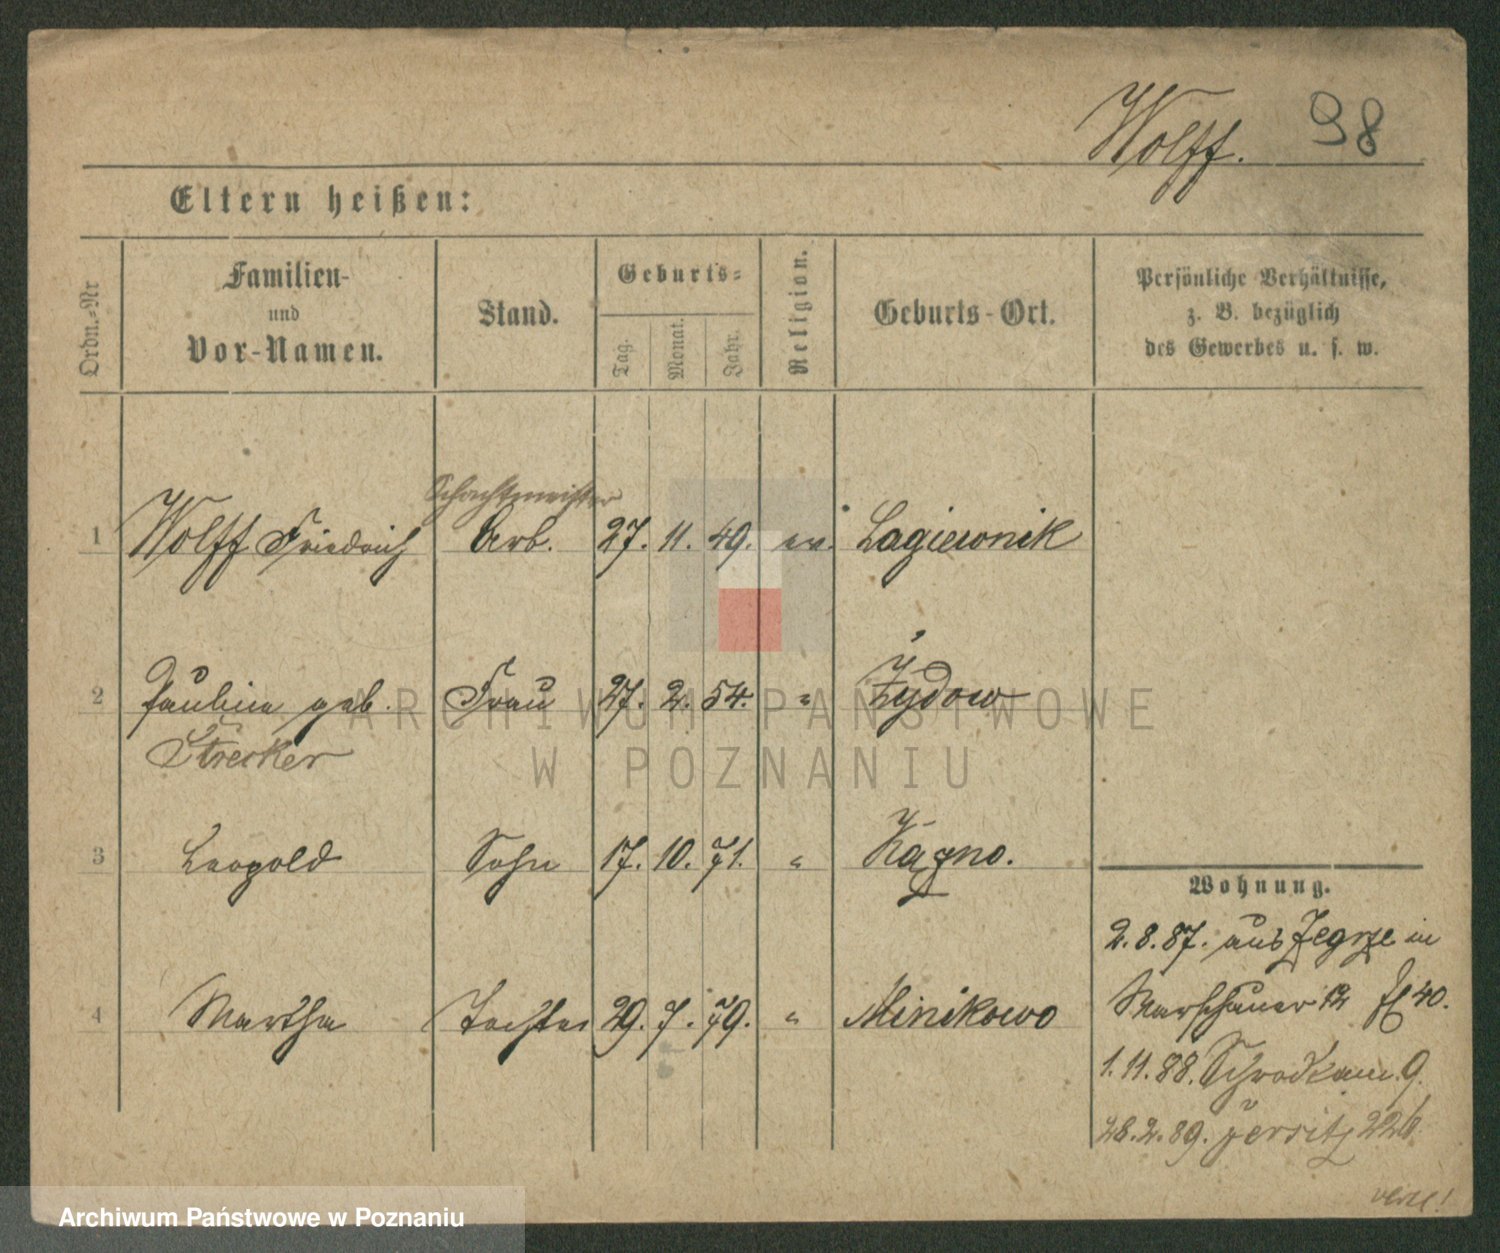 Wolff. 98
Eltern heißen:
Ordn.=Nr
Familien-
und
Vor-Namen.
Stand.
Geburts=
Tag.
Monat.
Jahr.
Religion.
Geburts-Ort.
Persönliche Verhältnisse,
z. B. bezüglich
des Gewerbes u. s. w.
Schachtmeister
1 Wolff Friedrich Arb. 27. 11. 49. ev. Lagiewnik
2 Pauline geb. Frau 27. 2. 54. " Żydow
Strecker
3 Leopold Sohn 17. 10. 71. "
4 Martha Tochter 29. 7. 79. " Minikowo
Wohnung.
2.8.87. aus Zegrze in
Warschauer 12
1.11.88. Schrodkam. 9.
28.2.89. Jersitz 226
ARCHIWUM PAŃSTWOWE
W POZNANIU
Archiwum Państwowe w Poznaniu